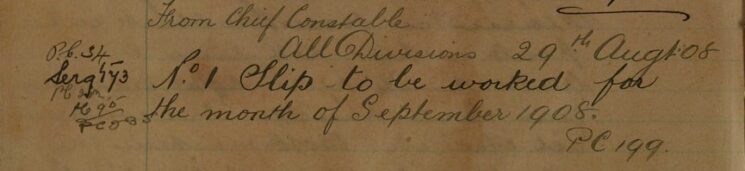 From Chief Constable
All Divisions 29th Augt 08
P.C. 34
Sergt 73
No 1 Slip to be worked for
the month of September 1908.
PC 199.